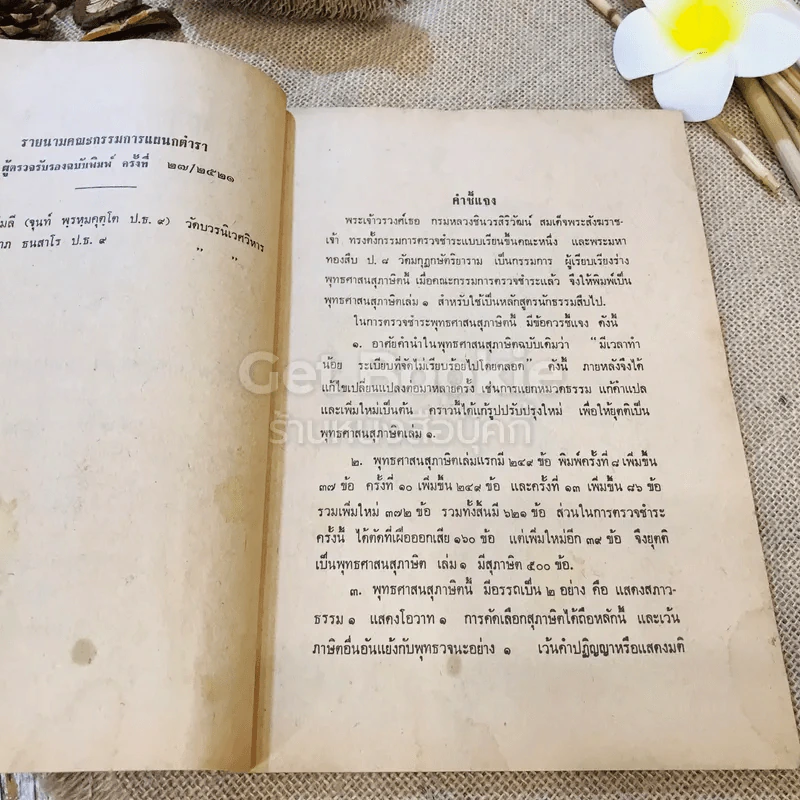 รายนามคณะกรรมการแผนกตำรา
ผู้ตรวจรับรองฉบับพิมพ์ ครั้งที่ ๒๗/๒๕๒๑
มลี (จุนท์ พฺรหฺมคุตฺโต ป.ธ. ๙) วัดบวรนิเวศวิหาร
าภ ธนสาโร ป.ธ. ๙ " "
คำชี้แจง
พระเจ้าวรวงศ์เธอ กรมหลวงชินวรสิริวัฒน์ สมเด็จพระสังฆราช-
เจ้า ทรงตั้งกรรมการตรวจชำระแบบเรียนขึ้นคณะหนึ่ง และพระมหา
ทองสืบ ป. ๘ วัดมกุฏกษัตริยาราม เป็นกรรมการ ผู้เรียบเรียงร่าง
พุทธศาสนสุภาษิตนี้ เมื่อคณะกรรมการตรวจชำระแล้ว จึงให้พิมพ์เป็น
พุทธศาสนสุภาษิตเล่ม ๑ สำหรับใช้เป็นหลักสูตรนักธรรมสืบไป.
ในการตรวจชำระพุทธศาสนสุภาษิตนี้ มีข้อควรชี้แจง ดังนี้
๑. อาศัยคำนำในพุทธศาสนสุภาษิตฉบับเดิมว่า "มีเวลาทำ
น้อย ระเบียบที่จัดไม่เรียบร้อยไปโดยตลอด" ดังนี้ ภายหลังจึงได้
แก้ไขเปลี่ยนแปลงต่อมาหลายครั้ง เช่นการแยกหมวดธรรม แก้คำแปล
และเพิ่มใหม่เป็นต้น คราวนี้ได้แก้รูปปรับปรุงใหม่ เพื่อให้ยุตติเป็น
พุทธศาสนสุภาษิตเล่ม ๑.
๒. พุทธศาสนสุภาษิตเล่มแรกมี ๒๔๙ ข้อ พิมพ์ครั้งที่ ๘ เพิ่มขึ้น
๓๗ ข้อ ครั้งที่ ๑๐ เพิ่มขึ้น ๒๔๙ ข้อ และครั้งที่ ๑๓ เพิ่มขึ้น ๘๖ ข้อ
รวมเพิ่มใหม่ ๓๗๒ ข้อ รวมทั้งสิ้นมี ๖๒๑ ข้อ ส่วนในการตรวจชำระ
ครั้งนี้ ได้ตัดที่เผื่อออกเสีย ๑๖๐ ข้อ แต่เพิ่มใหม่อีก ๓๙ ข้อ จึงยุตติ
เป็นพุทธศาสนสุภาษิต เล่ม ๑ มีสุภาษิต ๕๐๐ ข้อ.
๓. พุทธศาสนสุภาษิตนี้ มีอรรถเป็น ๒ อย่าง คือ แสดงสภาว-
ธรรม ๑ แสดงโอวาท ๑ การคัดเลือกสุภาษิตได้ถือหลักนี้ และเว้น
ภาษิตอื่นอันแย้งกับพุทธวจนะอย่าง ๑ เว้นคำปฏิญญาหรือแสดงมติ
Get Bookie
ร้านหนังสือบุ๊คกี้